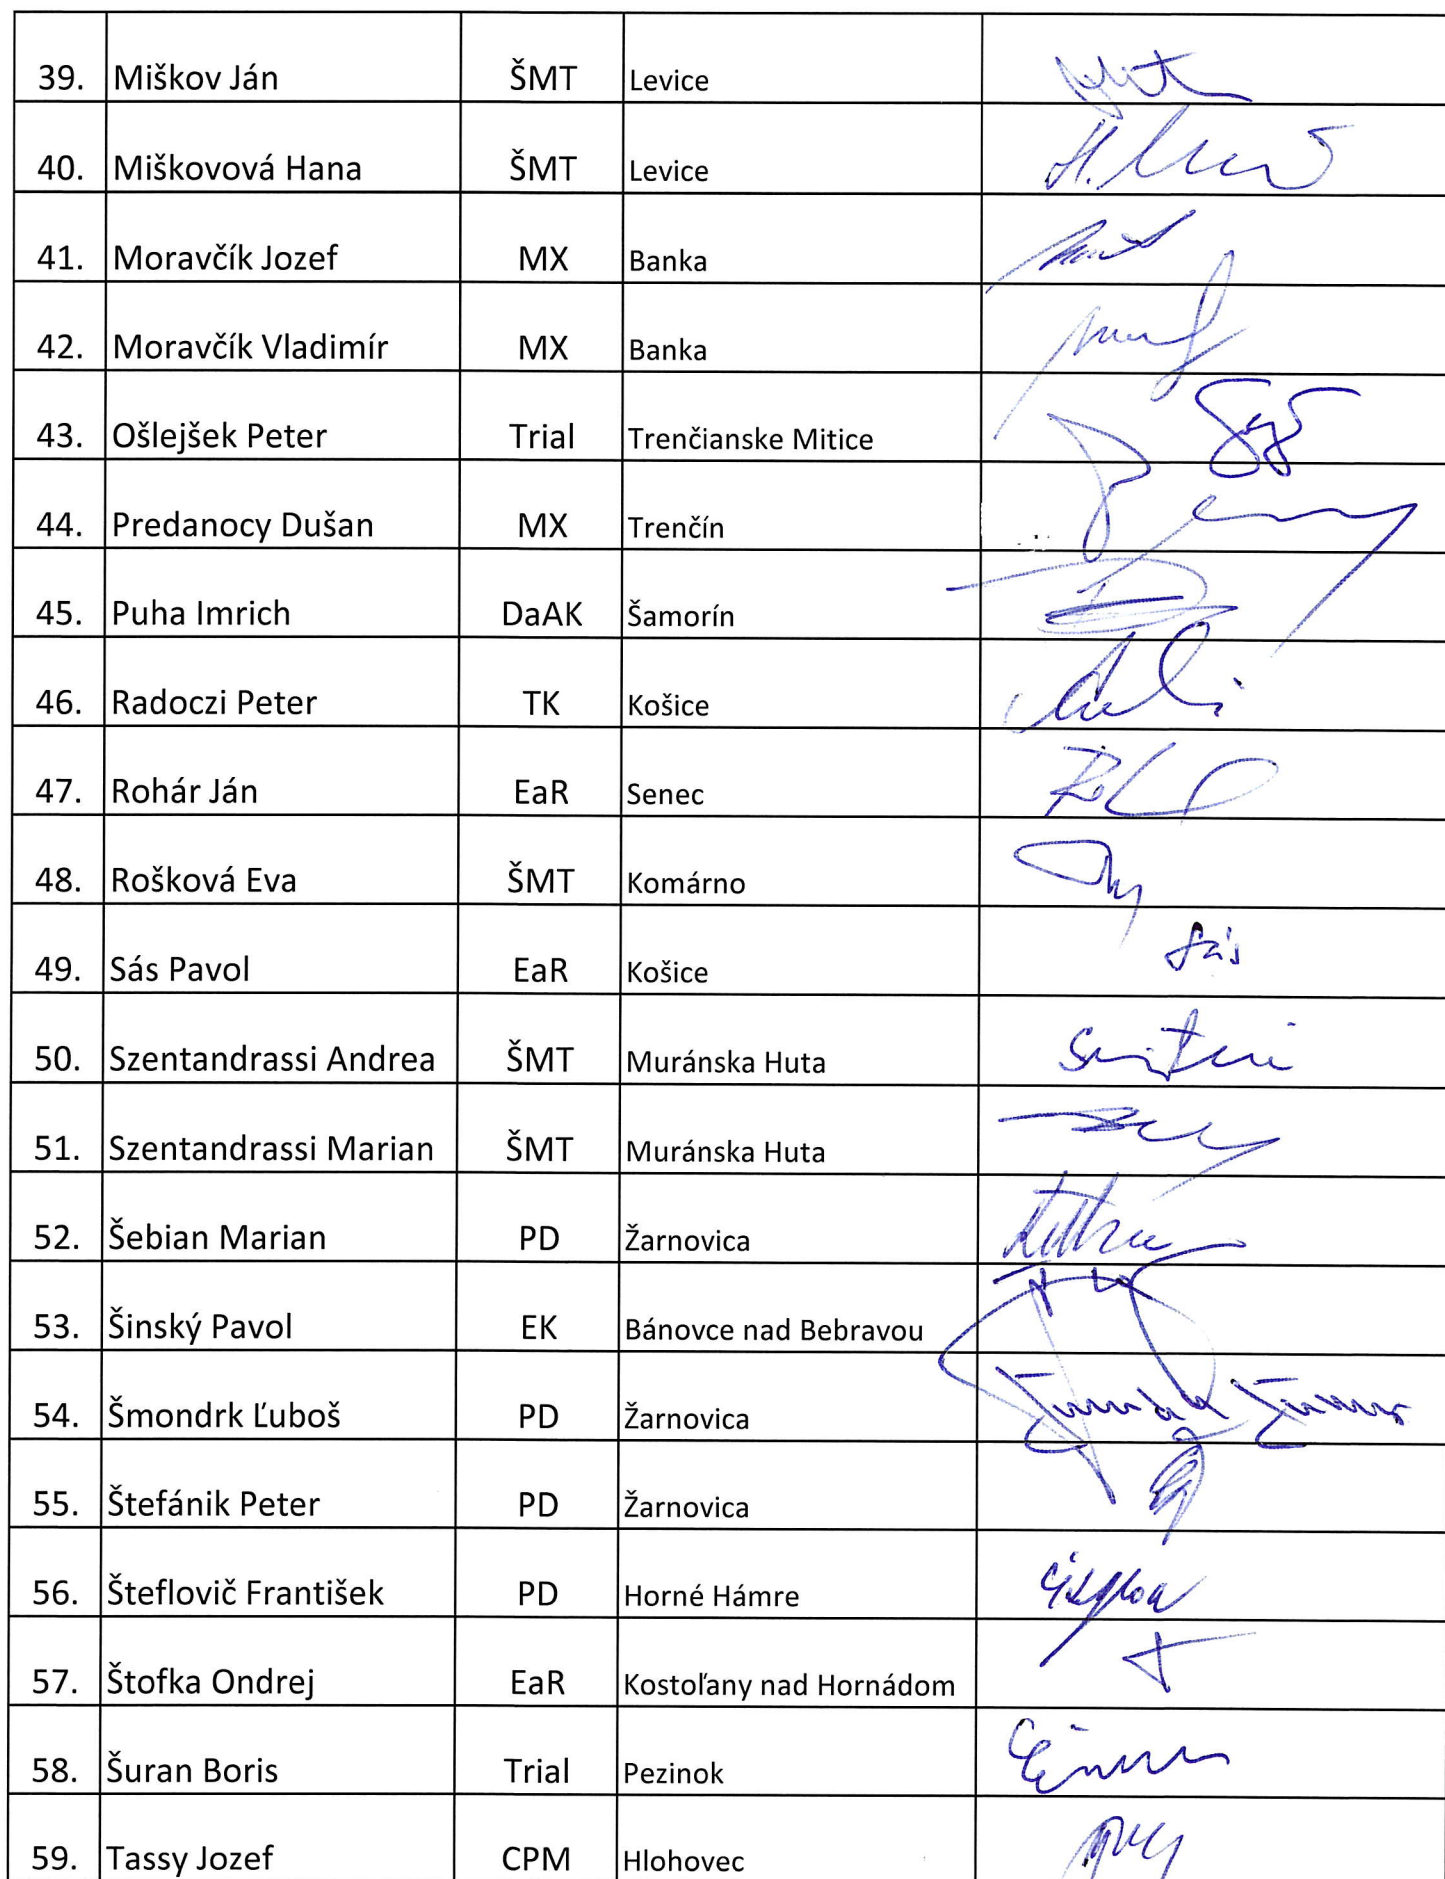 39. Miškov Ján ŠMT Levice
40. Miškovová Hana ŠMT Levice
41. Moravčík Jozef MX Banka
42. Moravčík Vladimír MX Banka
43. Ošlejšek Peter Trial Trenčianske Mitice
44. Predanocy Dušan MX Trenčín
45. Puha Imrich DaAK Šamorín
46. Radoczi Peter TK Košice
47. Rohár Ján EaR Senec
48. Rošková Eva ŠMT Komárno
49. Sás Pavol EaR Košice Sás
50. Szentandrassi Andrea ŠMT Muránska Huta
51. Szentandrassi Marian ŠMT Muránska Huta
52. Šebian Marian PD Žarnovica
53. Šinský Pavol EK Bánovce nad Bebravou
54. Šmondrk Ľuboš PD Žarnovica
55. Štefánik Peter PD Žarnovica
56. Šteflovič František PD Horné Hámre
57. Štofka Ondrej EaR Kostoľany nad Hornádom
58. Šuran Boris Trial Pezinok
59. Tassy Jozef CPM Hlohovec